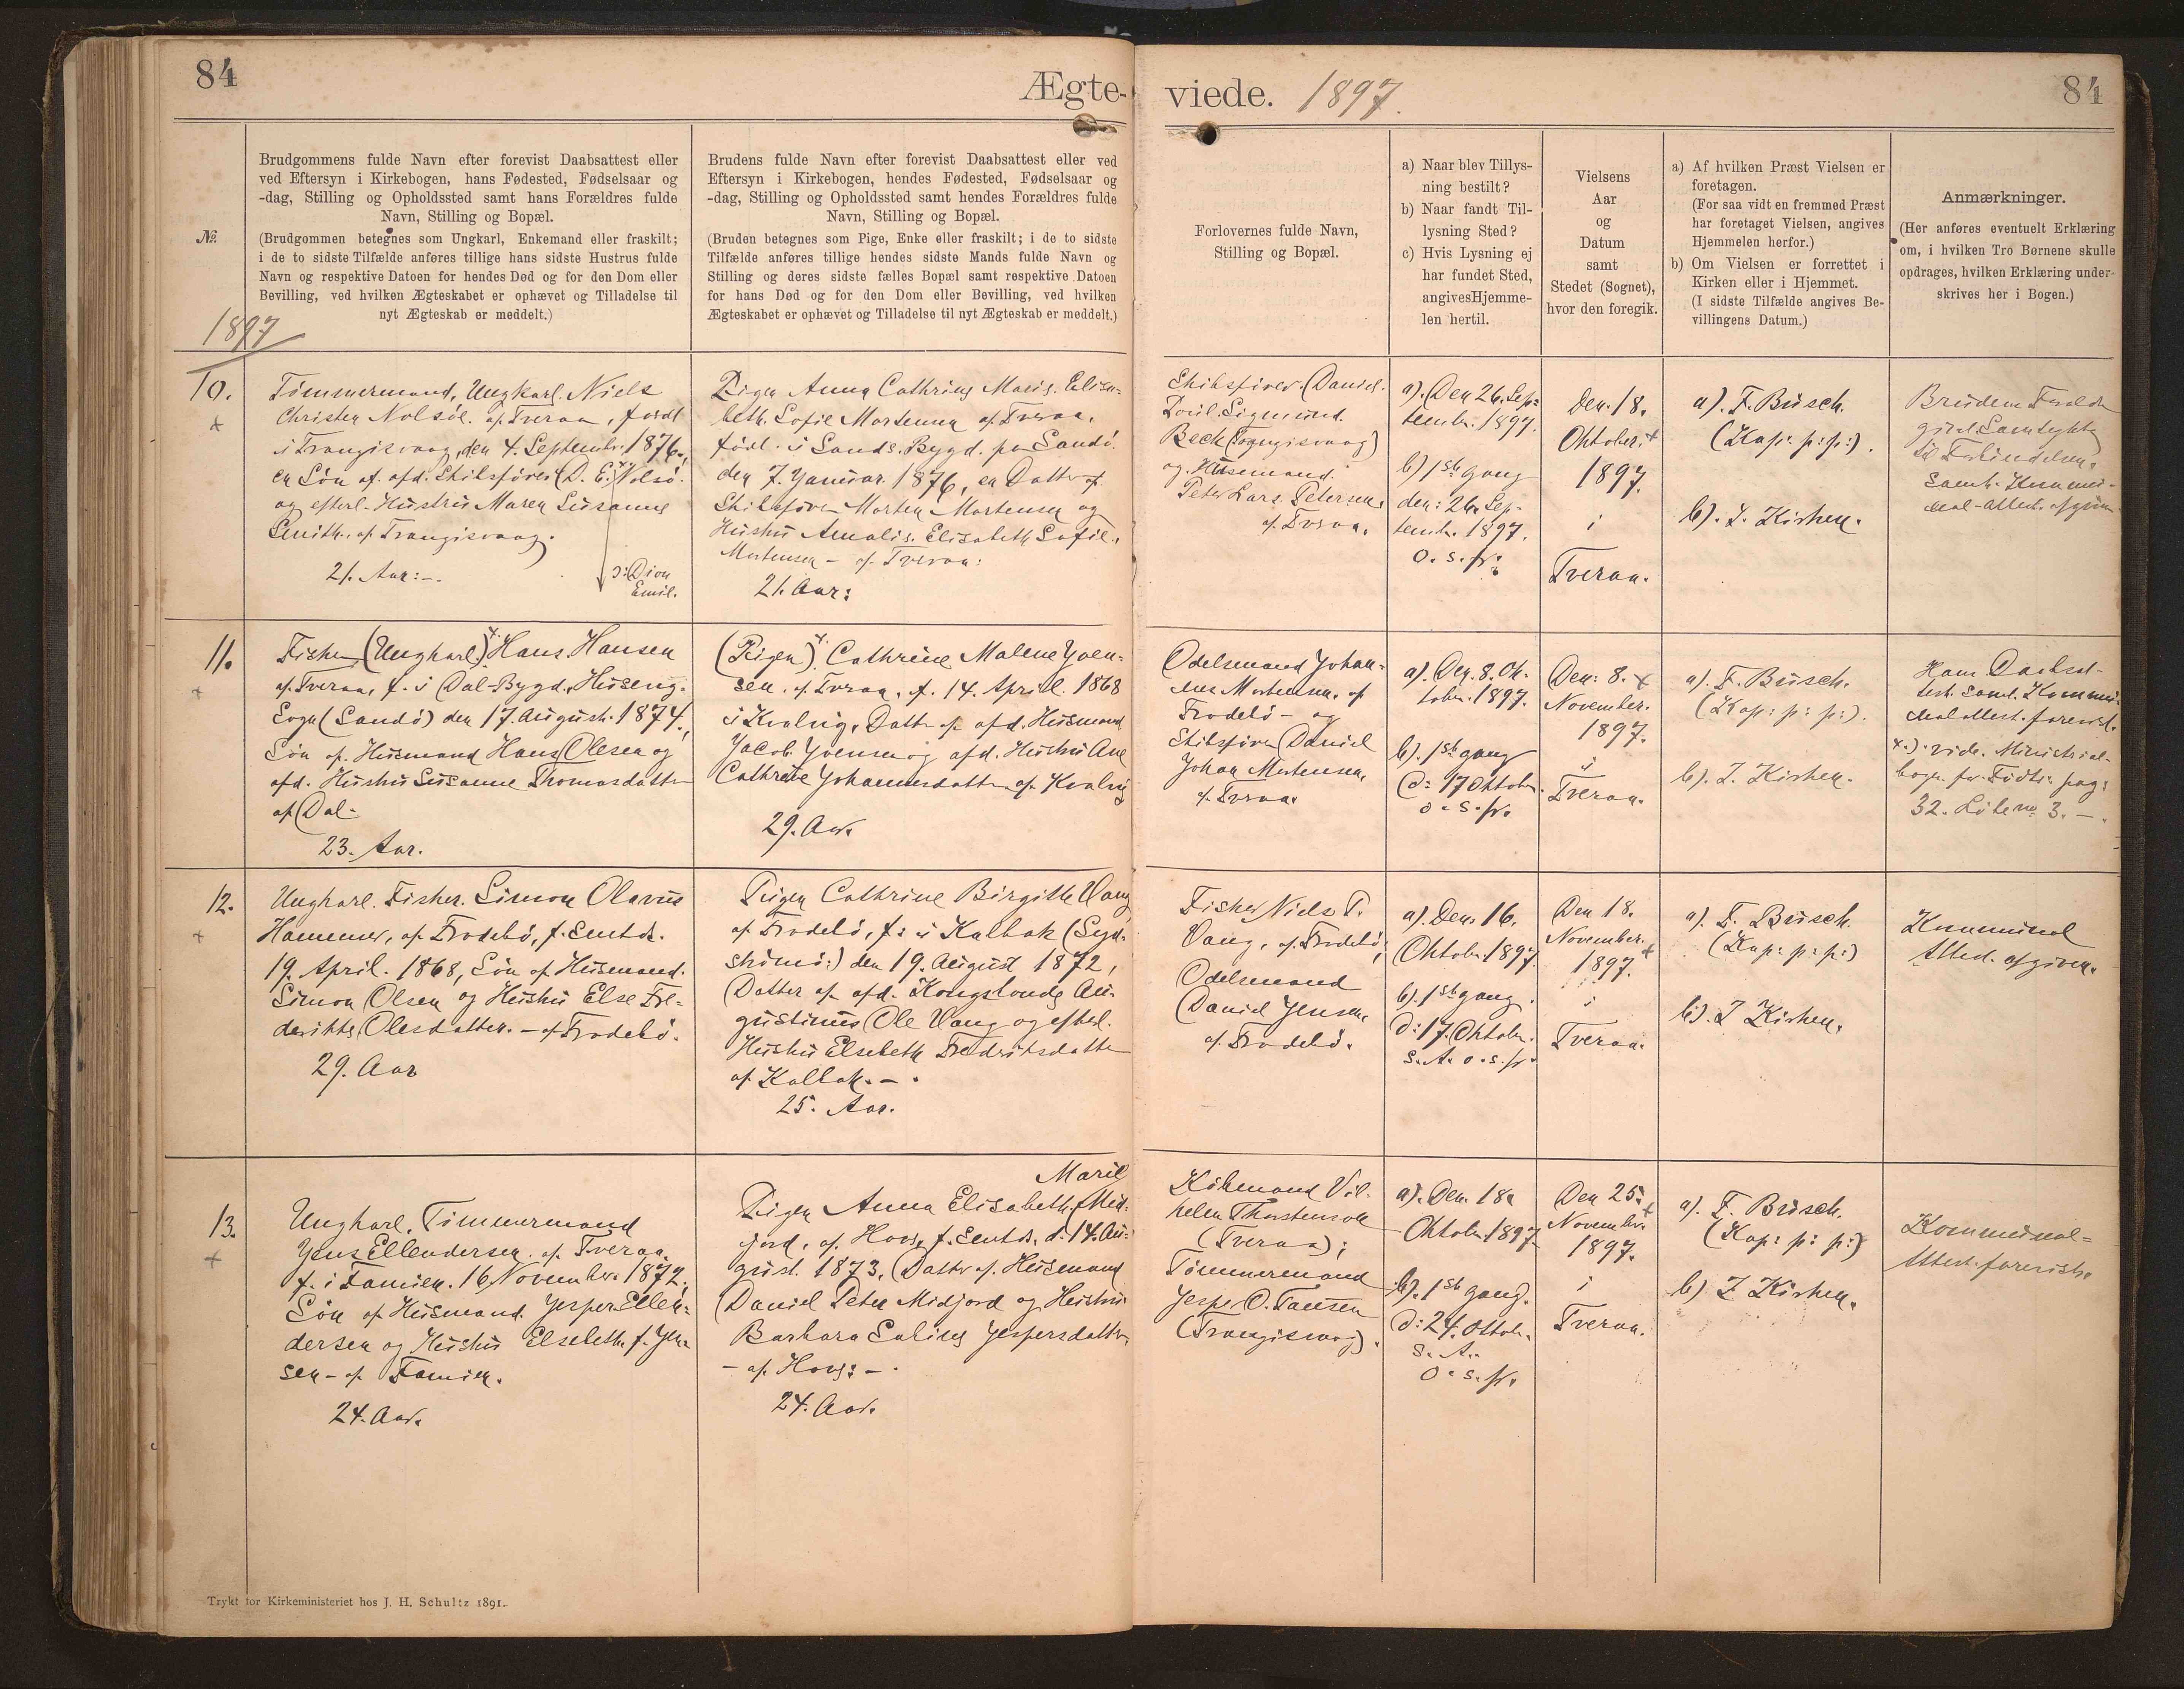 84
Ægte-
№.
Brudgommens fulde Navn efter forevist Daabsattest eller
ved Eftersyn i Kirkebogen, hans Fødested, Fødselsaar og
-dag, Stilling og Opholdssted samt hans Forældres fulde
Navn, Stilling og Bopæl.
(Brudgommen betegnes som Ungkarl, Enkemand eller fraskilt;
i de to sidste Tilfælde anføres tillige hans sidste Hustrus fulde
Navn og respektive Datoen for hendes Død og for den Dom eller
Bevilling, ved hvilken Ægteskabet er ophævet og Tilladelse til
nyt Ægteskab er meddelt.)
Brudens fulde Navn efter forevist Daabsattest eller ved
Eftersyn i Kirkebogen, hendes Fødested, Fødselsaar og
-dag, Stilling og Opholdssted samt hendes Forældres fulde
Navn, Stilling og Bopæl.
(Bruden betegnes som Pige, Enke eller fraskilt; i de to sidste
Tilfælde anføres tillige hendes sidste Mands fulde Navn og
Stilling og deres sidste fælles Bopæl samt respektive Datoen
for hans Død og for den Dom eller Bevilling, ved hvilken
Ægteskabet er ophævet og Tilladelse til nyt Ægteskab er meddelt.)
1897
10.
+
Tømmermand, Ungkarl. Niels
Christen Nolsöe. af Tveraa, född
i Trangisvaag, den 4. Septembr. 1876.,
en Søn af afd. Skibsfører (D. E. Nolsö.
og efterl. Hustru Maren Susanne
Smith. af Trangisvaag.
21. Aar:-.
ɔ: Dion
Emil.
Pigen Anna Cathrine Marie. Elisa-
beth. Sofie Mortensen af Tveraa,
född. i Sands. Bygd. paa Sandö.
den 7. Januar. 1876, en Datter af
Skibsfører Morten Mortensen og
Hustru Amalie. Elisabeth Sofie.
Mortensen - af Tveraa:
21. Aar:
11.
+
Fisker, (Ungkarl)x. Hans. Hansen
af Tveraa, f. i Dal-Bygd. Husevig-
Sogn (Sandö) den 17. August. 1874.,
Søn af. Husmand Hans Olesen og
afd. Hustru Susanne Thomasdatter
af Dal-
23. Aar.
(Pigen)x. Cathrine Malene Joen-
sen. af Tveraa, f. 14. April. 1868
i Kvalvig, Datter af afd. Husmand
Jacob. Joensen og afd. Hustru Ane
Cathrine Johannesdatter af Kvalvig
29. Aar.
12.
+
Ungkarl. Fisker. Simon Olavus
Hammer, af Frodebö, f. smtds.
19. April. 1868, Søn af Husmand.
Simon Olsen og Hustru Else Fre-
derikke Olesdatter. - af Frodebö.
29. Aar
Pigen Cathrine Birgithe Vang
af Frodebö, f: i Kalbak (Syd-
strömö:) den 19. August 1872,
Datter af afd. Kongsbonde Au-
gustinus Ole Vang og efterl.
Hustru Elsebeth Fredriksdatter
af Kalbak. -.
25. Aar.
13.
+
Ungkarl. Tømmermand
Jens Ellendersen. af Tveraa.
f. i Famien. 16 November 1872.
Søn af Husmand. Jesper Ellen-
dersen og Hustru Elsebeth f. Jen-
sen - af Famien.
24. Aar.
Marie
Pigen Anna Elisabeth Mid-
jord, af Hove f. smtds. d. 14. Au-
gust. 1873, Datter af. Husmand
Daniel Peter Midjord og Hustru
Barbara Sabine Jespersdatter
- af Hove: -.
24. Aar.
Trykt for Kirkeministeriet hos J. H. Schultz 1891.
viede. 1897.
84
Forlovernes fulde Navn,
Stilling og Bopæl.
a) Naar blev Tillys-
ning bestilt?
b) Naar fandt Til-
lysning Sted?
c) Hvis Lysning ej
har fundet Sted,
angives Hjemme-
len hertil.
Vielsens
Aar
og
Datum
samt
Stedet (Sognet),
hvor den foregik.
a) Af hvilken Præst Vielsen er
foretagen.
(For saa vidt en fremmed Præst
har foretaget Vielsen, angives
Hjemmelen herfor.)
b) Om Vielsen er forrettet i
Kirken eller i Hjemmet.
(I sidste Tilfælde angives Be-
villingens Datum.)
Anmærkninger.
(Her anføres eventuelt Erklæring
om, i hvilken Tro Børnene skulle
opdrages, hvilken Erklæring under-
skrives her i Bogen.)
Skibsfører. Daniel.
Sigmund.
Beck (Trongisvaag)
og Husmand.
Peter Lars Petersen.
af Tveraa.
a). Den 26. Sep-
tembr. 1897.
b) 1ste gang
den: 26. Sep-
tembr. 1897.
o. s. fr.
Den. 18.
Oktober. +
1897.
i
Tveraa.
a). F. Busch.
(Kap: p: p:).
b). I. Kirken.
Brudens Forældre
givet Samtykke
til Forbindelsen.
Samt. Kommu-
nal-Attest. afgiven
Odelsmand Johan-
nes Mortensen, af
Frodebö - og
Skibsfører Daniel
Johan Mortensen,
af Tveraa.
a). Den. 8. Ok-
tober. 1897.
b). 1ste gang
d: 17 Oktober.
o. s. fr.
Den: 8. +
November.
1897.
i
Tveraa.
a). F. Busch.
(Kap: p: p:).
b.) I. Kirken.
Hans Daabsat-
test. samt. Kommu-
nal attest. forevist.
x.). vide. Ministerial-
bogen for Födte pag:
32. Löbe no 3. -.
Fisker Niels P.
Vang, af Frodebö;
Odelsmand
Daniel Jensen,
af Frodebö.
a). Den. 16.
Oktobr. 1897.
b). 1ste gang.
d: 17. Oktober.
S. A. o. s. fr.
Den 18.
November. +
1897.
i
Tveraa.
a). F. Busch.
(Kap: p: p:)
b). I Kirken.
Kommunal
Attest. afgiven.
Købmand Vil-
helm Thorstensson
(Tveraa);
Tømmermand
Jesper O. Tausen
(Trangisvaag).
a). Den. 18.
Oktobr. 1897
b). 1ste gang.
d: 24. Oktob.
S. A.
o. s. fr.
Den 25. +
November.
1897.
i
Tveraa.
a). F. Busch.
(Kap: p: p:)
b) I Kirken.
Kommunal-
Attest. forevist.